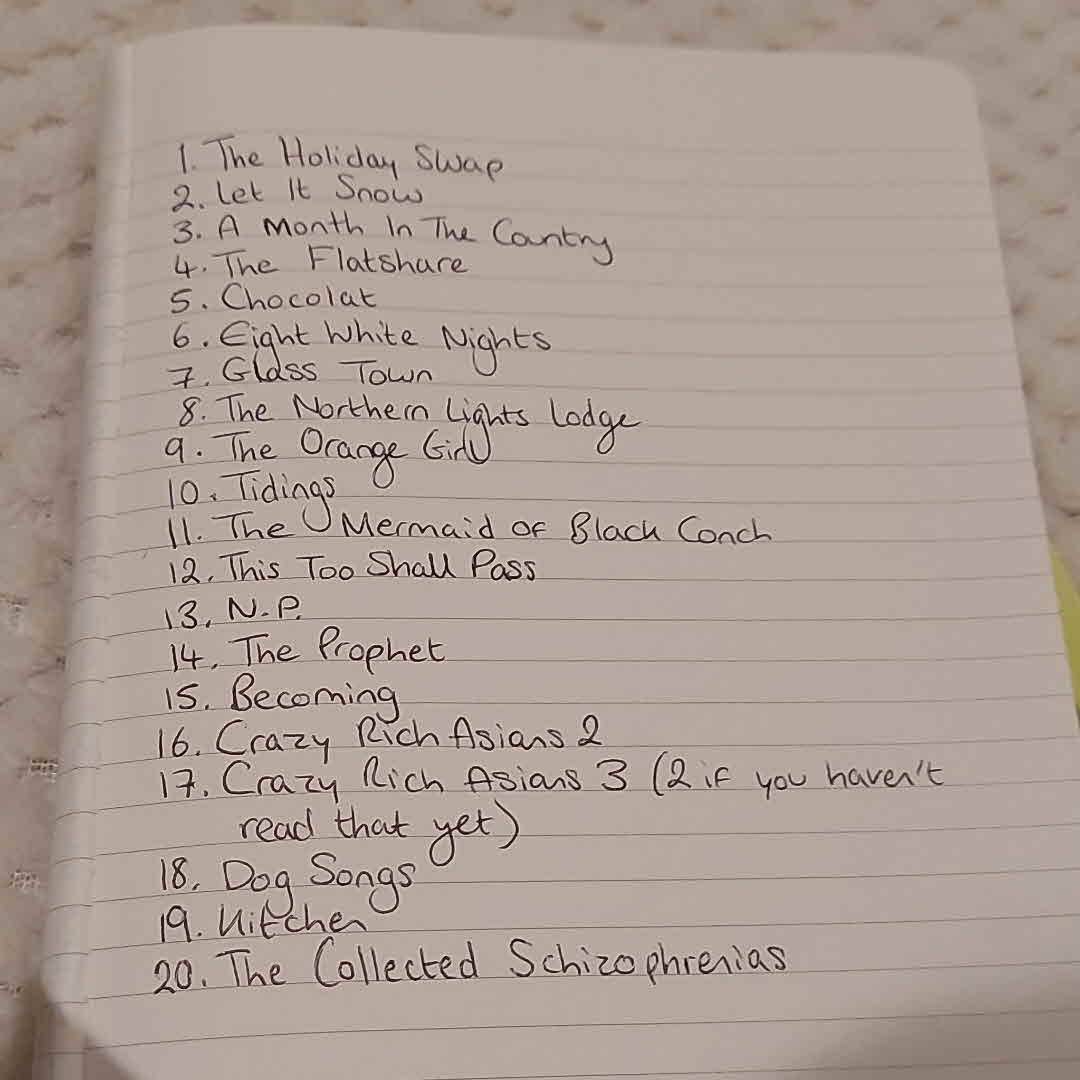 1. The Holiday Swap
2. Let It Snow
3. A Month In The Country
4. The Flatshare
5. Chocolat
6. Eight White Nights
7. Glass Town
8. The Northern Lights Lodge
9. The Orange Girl
10. Tidings
11. The Mermaid of Black Conch
12. This Too Shall Pass
13. N.P.
14. The Prophet
15. Becoming
16. Crazy Rich Asians 2
17. Crazy Rich Asians 3 (2 if you haven't
read that yet)
18. Dog Songs
19. Kitchen
20. The Collected Schizophrenias